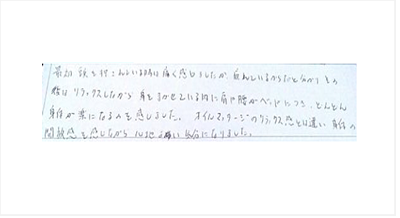 最初 頭を押こんでいる時は痛く感じましたが 血んでいるからだと分かりその
後は リラックスしながら 身をまかせている内に肩や腰がベッドにつき、どんどん
身体が楽になるのを感じました。 オイルマッサージのリラックス感とは違い 身体の
開放感を感じながら 心地よい気分になりました。